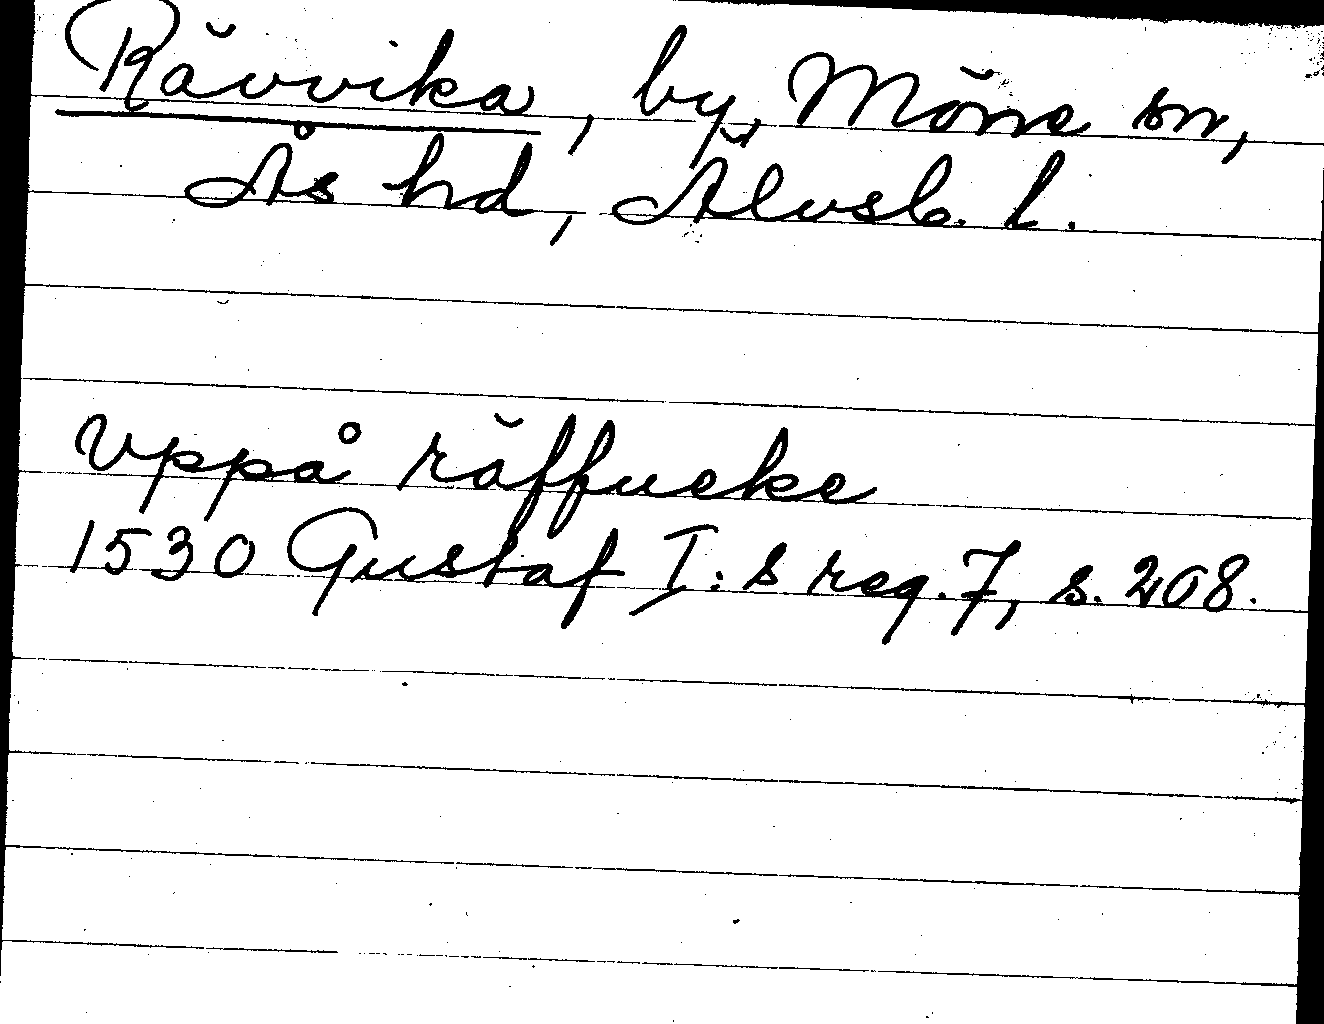 Rävvika, by, Möne sn,
Ås hd, Älvsb. l.
Vppå räffueke
1530 Gustaf I:s reg. 7, s. 208.